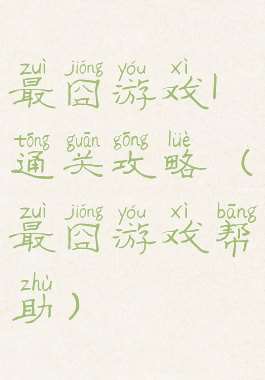 zuì jiǒng yóu xì
最囧游戏|
tōng guān gōng lüè
通关攻略（
zuì jiǒng yóu xì bāng
最囧游戏帮
zhù
助）